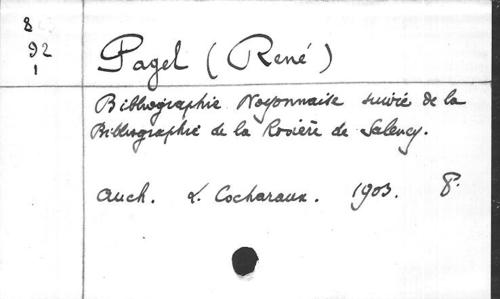 8
92
1
Pagel (René)
Bibliographie Noyonnaise suivie de la
Bibliographie de la Rosière de Salency.
Auch. L. Cocharaux. 1903. 8°.